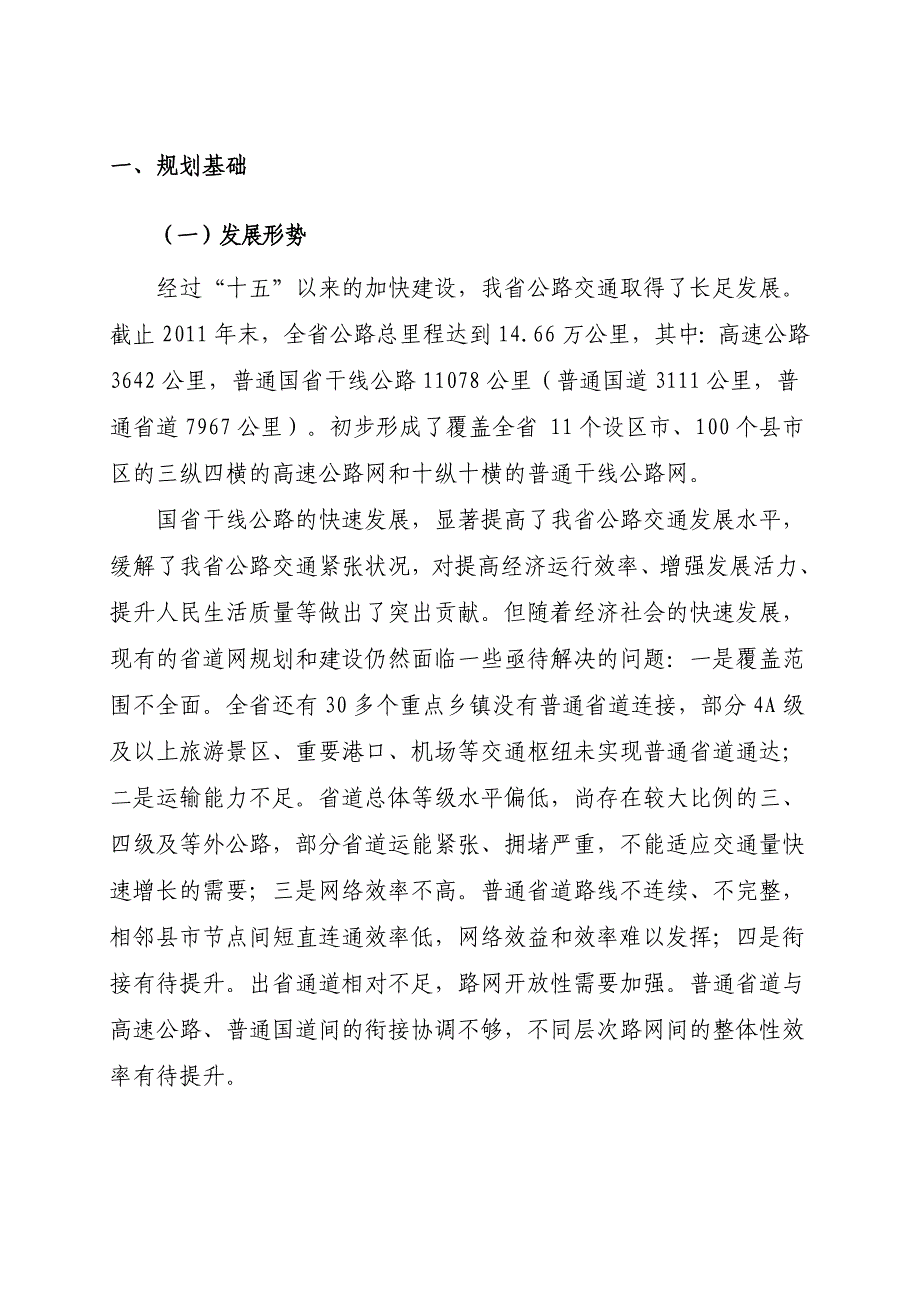 一、规划基础
（一）发展形势
经过“十五”以来的加快建设，我省公路交通取得了长足发展。
截止 2011 年末，全省公路总里程达到 14.66 万公里，其中：高速公路
3642 公里，普通国省干线公路 11078 公里（普通国道 3111 公里，普
通省道 7967 公里）。初步形成了覆盖全省 11 个设区市、100 个县市
区的三纵四横的高速公路网和十纵十横的普通干线公路网。
国省干线公路的快速发展，显著提高了我省公路交通发展水平，
缓解了我省公路交通紧张状况，对提高经济运行效率、增强发展活力、
提升人民生活质量等做出了突出贡献。但随着经济社会的快速发展，
现有的省道网规划和建设仍然面临一些亟待解决的问题：一是覆盖范
围不全面。全省还有 30 多个重点乡镇没有普通省道连接，部分 4A 级
及以上旅游景区、重要港口、机场等交通枢纽未实现普通省道通达；
二是运输能力不足。省道总体等级水平偏低，尚存在较大比例的三、
四级及等外公路，部分省道运能紧张、拥堵严重，不能适应交通量快
速增长的需要；三是网络效率不高。普通省道路线不连续、不完整，
相邻县市节点间短直连通效率低，网络效益和效率难以发挥；四是衔
接有待提升。出省通道相对不足，路网开放性需要加强。普通省道与
高速公路、普通国道间的衔接协调不够，不同层次路网间的整体性效
率有待提升。